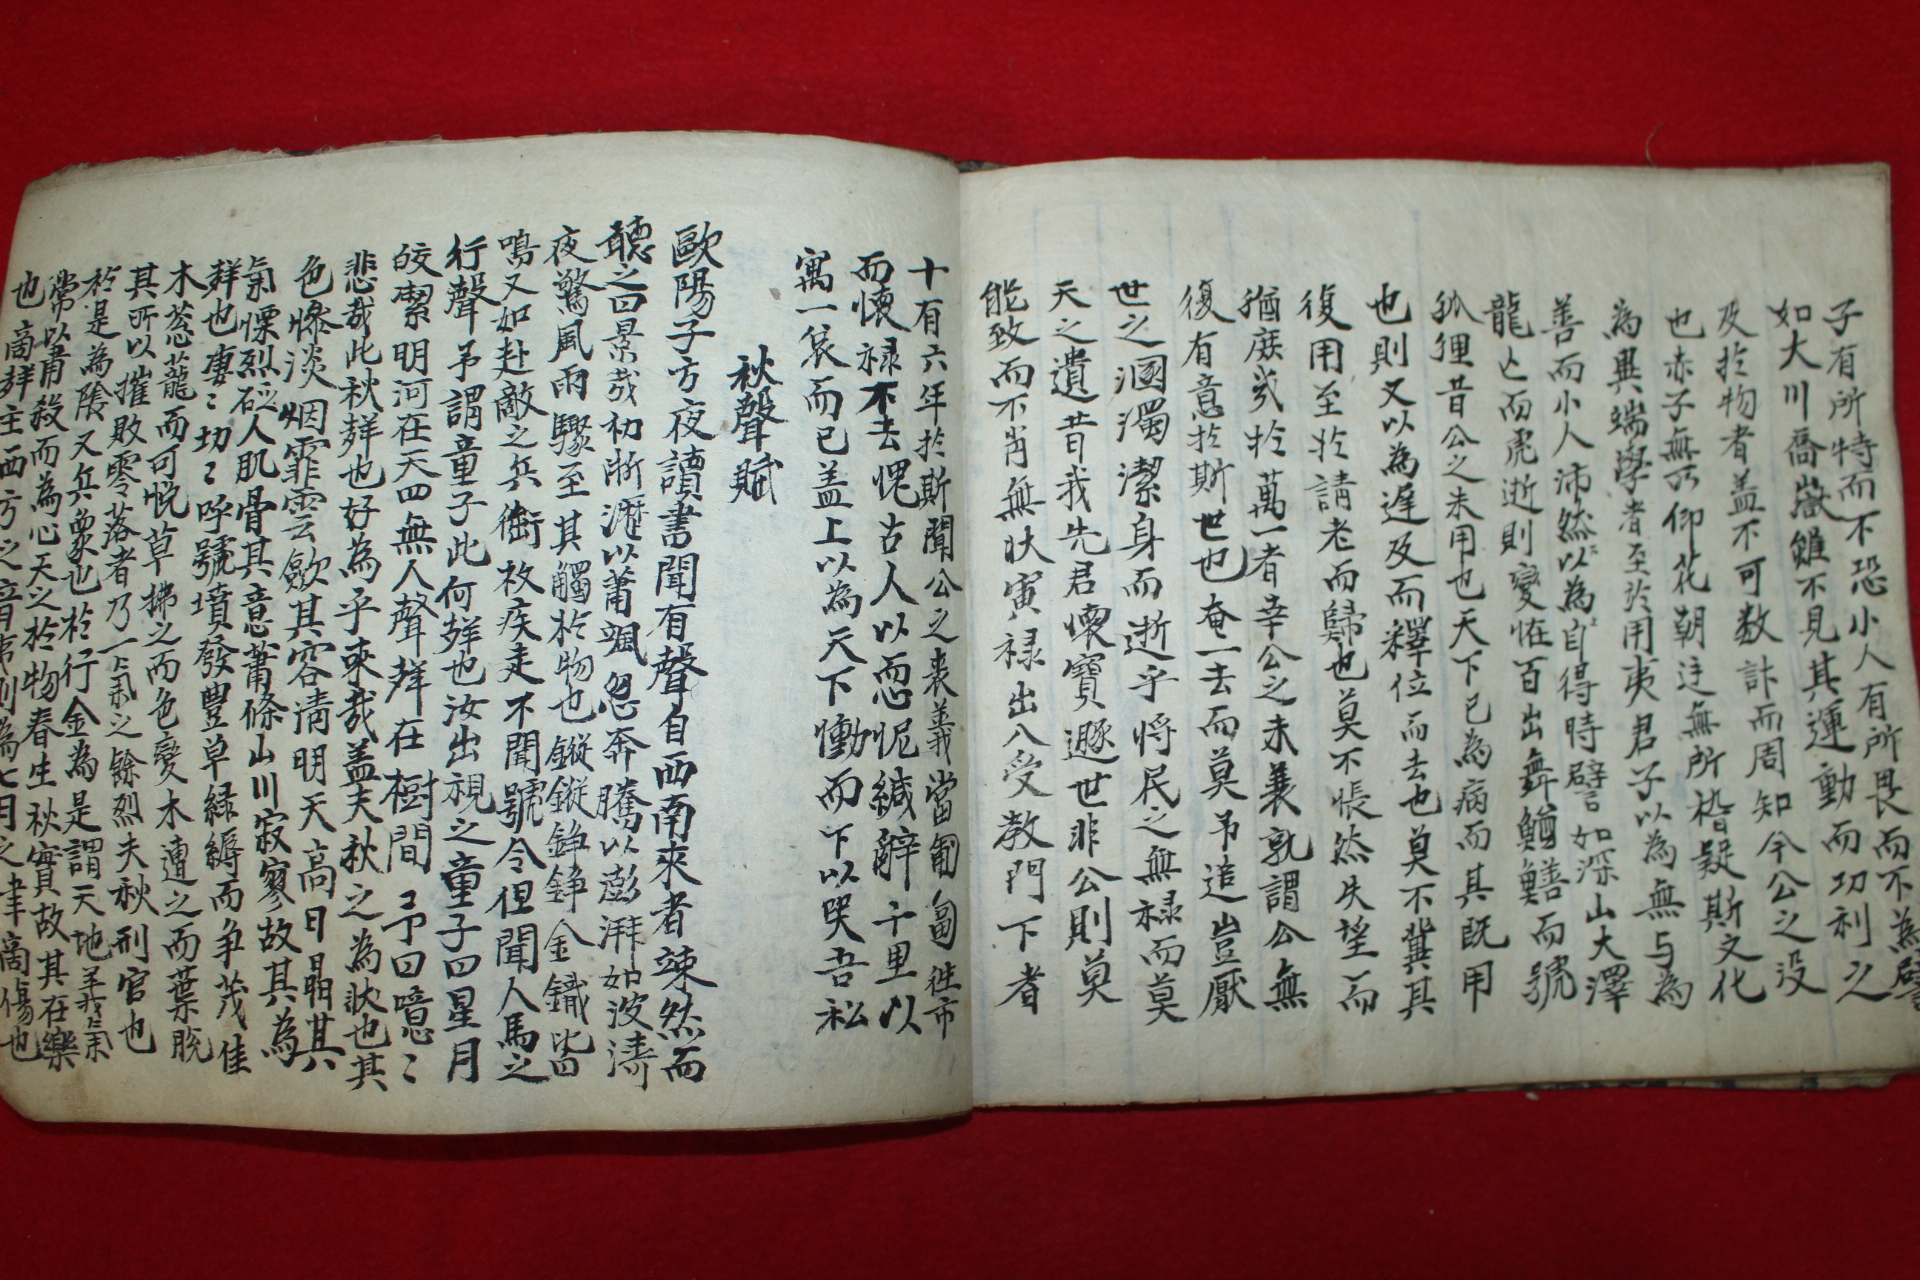 子有所恃而不恐小人有所畏而不為譬
如大川喬嶽雖不見其運動而功利之
及於物者盖不可数計而周知今公之没
也赤子無所仰芘朝廷無所稽疑斯文化
為異端學者至於用夷君子以為無与為
善而小人沛然以為自得時譬如深山大澤
龍亡而虎逝則變恠百出舞鰌鱔而號
狐狸昔公之未用也天下已為病而其既用
也則又以為遅及而釋位而去也莫不冀其
復用至於請老而歸也莫不悵然失望而
猶庶㡬於萬一者幸公之未衰孰謂公無
復有意於斯世也奄一去而莫予追豈厭
世之溷濁潔身而逝乎将民之無禄而莫
天之遺昔我先君懷寶遯世非公則莫
能致而不肖無狀寅禄出入受教門下者
十有六年於斯聞公之喪義當匍匐往吊
而懐禄不去愧古人以忸怩緘辭千里以
寓一哀而已盖上以為天下慟而下以哭吾私
秋聲賦
歐陽子方夜讀書聞有聲自西南來者竦然而
聽之曰異哉初淅瀝以蕭颯忽奔騰以澎湃如波濤
夜驚風雨驟至其觸於物也鏦鏦錚錚金鐵皆
鳴又如赴敵之兵銜枚疾走不聞號令但聞人馬之
行聲予謂童子此何声也汝出視之童子曰星月
皎潔明河在天四無人聲声在樹間予曰噫〻
悲哉此秋声也好為乎來哉盖夫秋之為狀也其
色慘淡烟霏雲歛其容清明天高日晶其
氣慄烈砭人肌骨其意蕭條山川寂寥故其為
声也凄〻切〻呼號墳發豐草緑縟而争茂佳
木葱蘢而可悅草拂之而色變木遭之而葉脫
其所以摧敗零落者乃一氣之餘烈夫秋刑官也
於是為陰又兵象也於行金為是謂天地義氣
常以肅殺而為心天之於物春生秋實故其在樂
也商声主西方之音夷則為七月之律商傷也